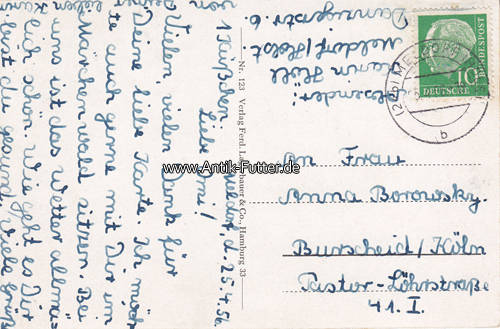 Meldorf, d. 25.4.56.
Liebe Omi!
Vielen, vielen Dank für
Deine liebe Karte. Ich möch
te auch gerne mit Dir im
Märchenwald sitzen. Bei
uns ist das Wetter allmä
lich schön. Wie geht es Dir
bist du gesund? Viele Grüß
von
1 Küßchen
Nr. 123 Verlag Ferd. & Co., Hamburg 33
Absender:
Karin Höll
Meldorf/Holst
Danzigerstr. 6.
DEUTSCHE BUNDESPOST
10
(24b) MELDORF
b
An Frau
Anna Borowsky.
Burscheid/Köln
Pastor-Löhrstraße
41. I.
www.Antik-Futter.de